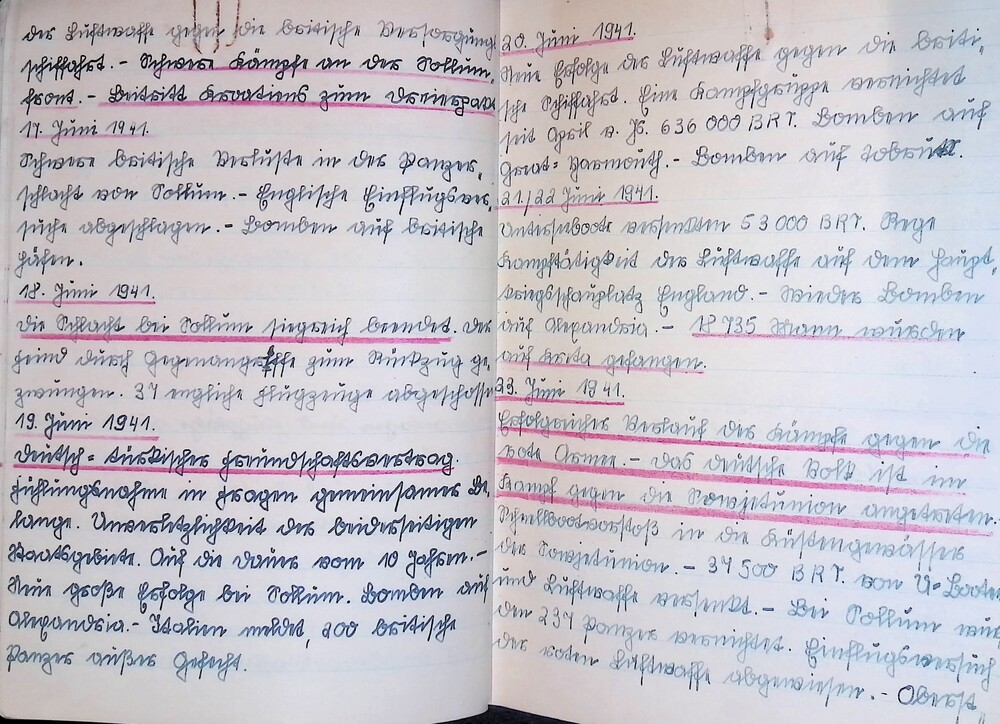 der Luftwaffe gegen die britische Versorgung
schiffahrt. - Schwere Kämpfe an der Sollum,
front. - Beitritt Kroatiens zum Dreierpakt
17. Juni 1941.
Schwere britische Verluste in der Panzer,
schlacht von Sollum. - Englische Einflugsver,
suche abgeschlagen. - Bomben auf britische
Häfen.
18. Juni 1941.
Die Schlacht bei Sollum siegreich beendet. Der
Feind durch Gegenangriffe zum Rückzug ge,
zwungen. 37 engliche Flugzeuge abgeschosse
19. Juni 1941.
Deutsch = türkischer Freundschaftsvertrag.
Fühlungsnahme in Fragen gemeinsamer Be,
lange. Unverletzlichkeit der beiderseitigen
Staatsgebiete. Auf die Dauer vom 10 Jahren. -
Neue große Erfolge bei Sollum. Bomben auf
Alexandria. - Italien meldet, 200 britische
Panzer außer Gefecht.
20. Juni 1941.
Neue Erfolge der Luftwaffe gegen die briti,
sche Schiffahrt. Eine Kampfgruppe vernichtet
seit April v. Js. 636 000 BRT. Bomben auf
Great = Yarmouth. - Bomben auf Tobruk.
21./22 Juni 1941.
Unterseeboote versenkten 53 000 BRT. Rege
Kampftätigkeit der Luftwaffe auf dem Haupt,
kriegsschauplatz England. - Wieder Bomben
auf Alexandria. - 18 735 Mann wurden
auf Kreta gefangen.
23. Juni 1941.
Erfolgreicher Verlauf der Kämpfe gegen die
rote Armee. - Das deutsche Volk ist im
Kampf gegen die Sowjetunion angetreten.
Schnellbootvorstoß in die Küstengewässer
der Sowjetunion. - 37 500 BRT. von U-Booten
und Luftwaffe versenkt. - Bei Sollum wur
den 237 Panzer vernichtet. Einflugsversuch
der roten Luftwaffe abgewiesen. - Oberst,